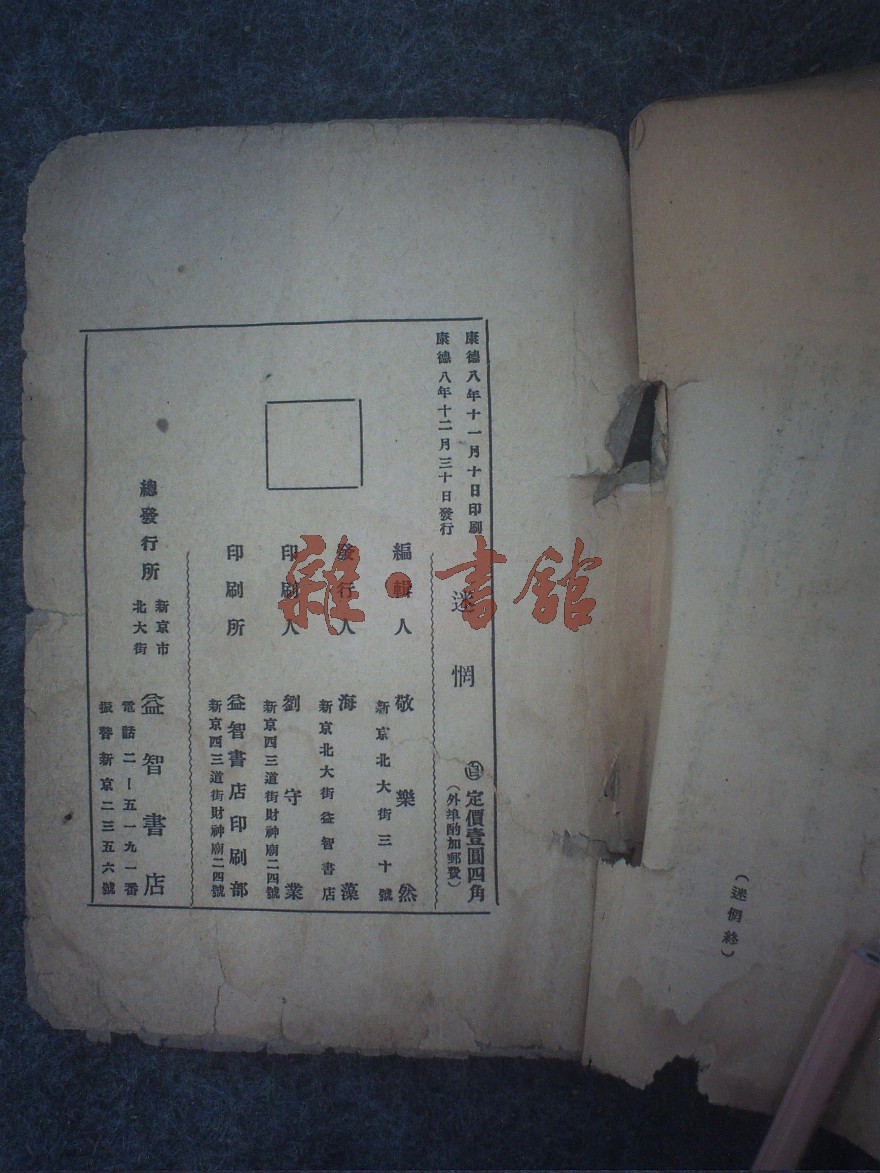 (迷惘終)
康德八年十一月十日印刷
康德八年十二月三十日發行
迷惘
定價壹圓四角
(外埠酌加郵費)
編輯人 敬樂然
新京北大街三十號
發行人 海藻
新京北大街益智書店
印刷人 劉守業
新京四三道街財神廟二四號
印刷所 益智書店印刷部
新京四三道街財神廟二四號
總發行所 新京市北大街 益智書店
電話二—五一九一番
振替新京二三五六號
雜·書館